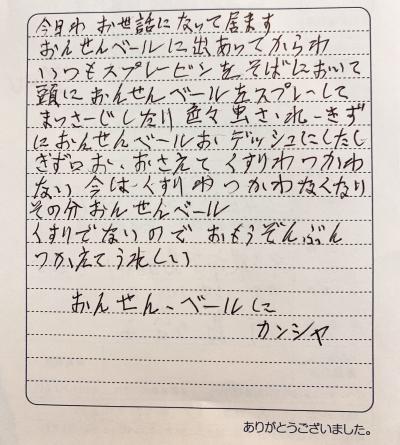 今日わ お世話になって居ます
おんせんベールに出あってからわ
いつもスプレービンをそばにおいて
頭におんせんベールをスプレーして
まっさーじしたり 色々 虫さされーきず
におんせんベールお デッシュにしたし
きず口お、おさえて くすりわつかわ
ない 今は くすりわ つかわなくなり
その分 おんせんベール
くすりでないので おもうぞんぶん
つかえてうれしい
おんせん、ベールに
カンシャ
ありがとうございました。